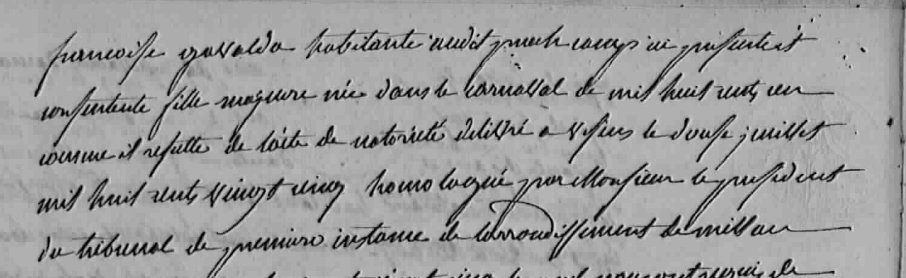 francoise gavalda habitante audit puech camp ici presente et
consentente fille mageure née dans le carnaval de mil huit cents un
comme il resulte de l'acte de notorieté delivré a vesins le douse juillet
mil huit cents vingt cinq homologué par Monsieur le president
du tribunal de premiere instance de l'arrondissement de millau